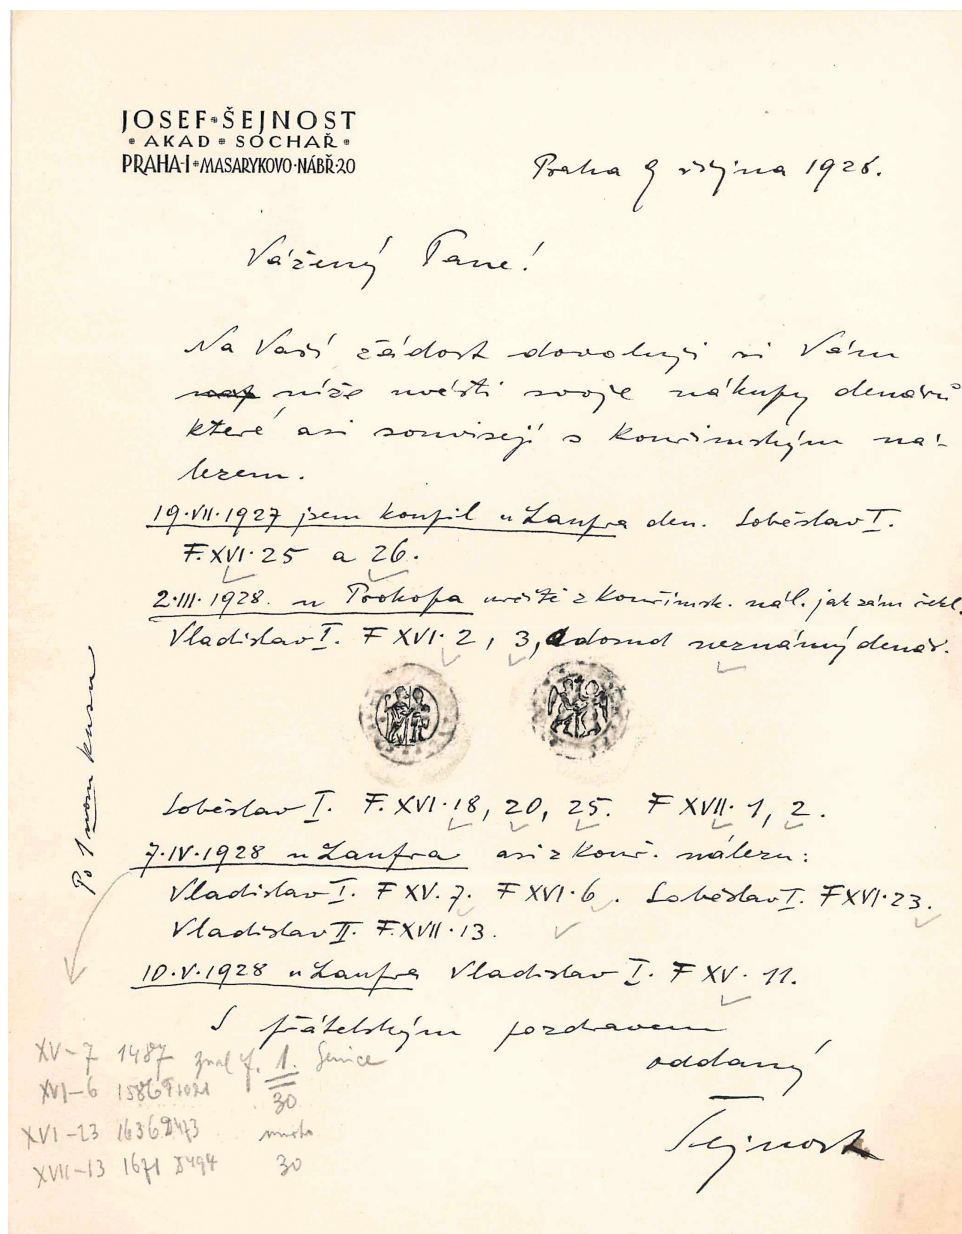 JOSEF ŠEJNOST
AKAD SOCHAŘ
PRAHA-I MASARYKOVO NÁBŘ 20
Praha 9 října 1928.
Vážený Pane!
Na Vaší žádost dovoluji si Vám
níže uvésti svoje nákupy denárů
které asi souvisejí s Kouřimským ná-
lezem.
19.VII.1927 jsem koupil u Laufra den. Soběslav I.
F.XVI.25 a 26.
2.III.1928. u Prokopa určitě z Kouřimsk. nál. jak sám řekl.
Vladislav I. F XVI.2, 3, a dosud neznámý denár.
Soběslav I. F.XVI.18, 20, 25. F XVII.1, 2.
7.IV.1928 u Laufra asi z Kouř. nálezu:
Vladislav I. F XV.7. F XVI.6. Soběslav I. F XVI.23.
Vladislav II. F.XVII.13.
10.V.1928 u Laufra Vladislav I. F XV.11.
S přátelským pozdravem
oddaný
Šejnost
Po 1nom kusu
XV-7 1487 1.
XVI-6 30
XVI-23
XVII-13 1671 30